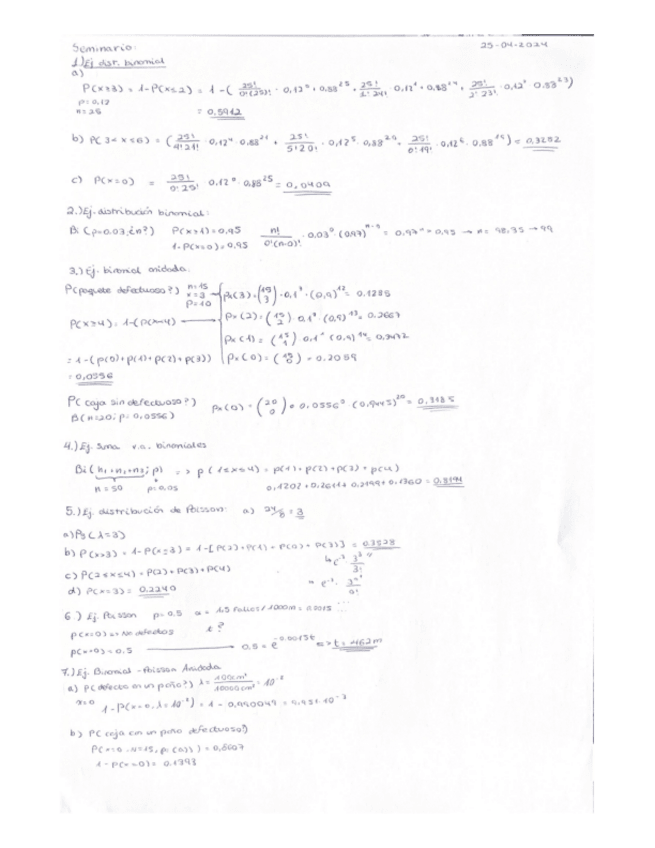 Seminario: 25-04-2024
1.) Ej dist. binomial
a)
P(x≥3) = 1-P(x≤2) = 1-( 25!/0!(25)! · 0,12⁰ · 0,88²⁵ + 25!/1!·24! · 0,12¹ · 0,88²⁴ + 25!/2!·23! · 0,12² · 0.88²³)
p=0,12
n=25 = 0.5912
b) P(3< x≤6) = ( 25!/4!21! · 0,12⁴ · 0.88²¹ + 25!/5!20! · 0,12⁵ · 0,88²⁰ + 25!/6!·19! · 0.12⁶ · 0.88¹⁹) = 0,3252
c) P(x=0) = 25!/0!·25! · 0.12⁰ · 0.88²⁵ = 0,0409
2.) Ej. distribución binomial:
Bi (p=0.03; ¿n?) P(x≥1)=0,95 n!/0!(n-0)! · 0.03⁰ · (0,97)ⁿ⁻⁰ = 0.97ⁿ = 0,95 → n= 98,35 → 99
1-P(x=0)=0,95
3.) Ej. binomial anidada.
P(paquete defectuoso?) n=15 x=3 p=10 Px(3) = (15 3) · 0,1³ · (0,9)¹² = 0.1285
P(x≥4) = 1-(P(x<4) Px(2) = (15 2) 0,1² · (0,9)¹³ = 0.2667
Px(1) = (15 1) 0.1¹ (0,9)¹⁴ =
= 1-(p(0)+p(1)+p(2)+p(3)) Px(0) = (15 0) = 0.2059
= 0,0556
P( caja sin defectuoso?) Px(0) = (20 0) · 0.0556⁰ · (0,9445)²⁰ = 0,3185
B(n=20; p=0,0556)
4.) Ej. Suma v.a. binomiales
Bi(n₁+n₂+n₃; p) => p(1≤x≤4) = p(1)+p(2)+p(3)+p(4)
n=50 p=0,05 0,1202+0,2611+0,2199+0,1360 =
5.) Ej. distribución de Poisson: a) 24/8 = 3
a) Ps(λ=3)
b) P(x>3) = 1-P(x≤3) = 1-[P(2)+P(1)+P(0)+P(3)] = 0.3528
c) P(2≤x≤4) = P(2)+P(3)+P(4)
d) P(x=3) = 0.2240
6.) Ej. Poisson p=0.5 a = 1,5 fallos/1000m = 0.0015
P(x=0) => No defectos t?
P(x=0) = 0,5 → 0.5 = e⁻⁰·⁰⁰¹⁵ᵗ => t = 462m
7.) Ej. Binomial - Poisson Anidada
a) P(defecto en un paño?) λ = 100cm²/10000cm² = 10⁻²
x=0 1-P(x=0, λ=10⁻²) = 1 - 0,990049 = 9,951·10⁻³
b) P( caja con un paño defectuoso?)
P(x=0, n=15, = 0,8607
1-P(x=0) = 0.1393